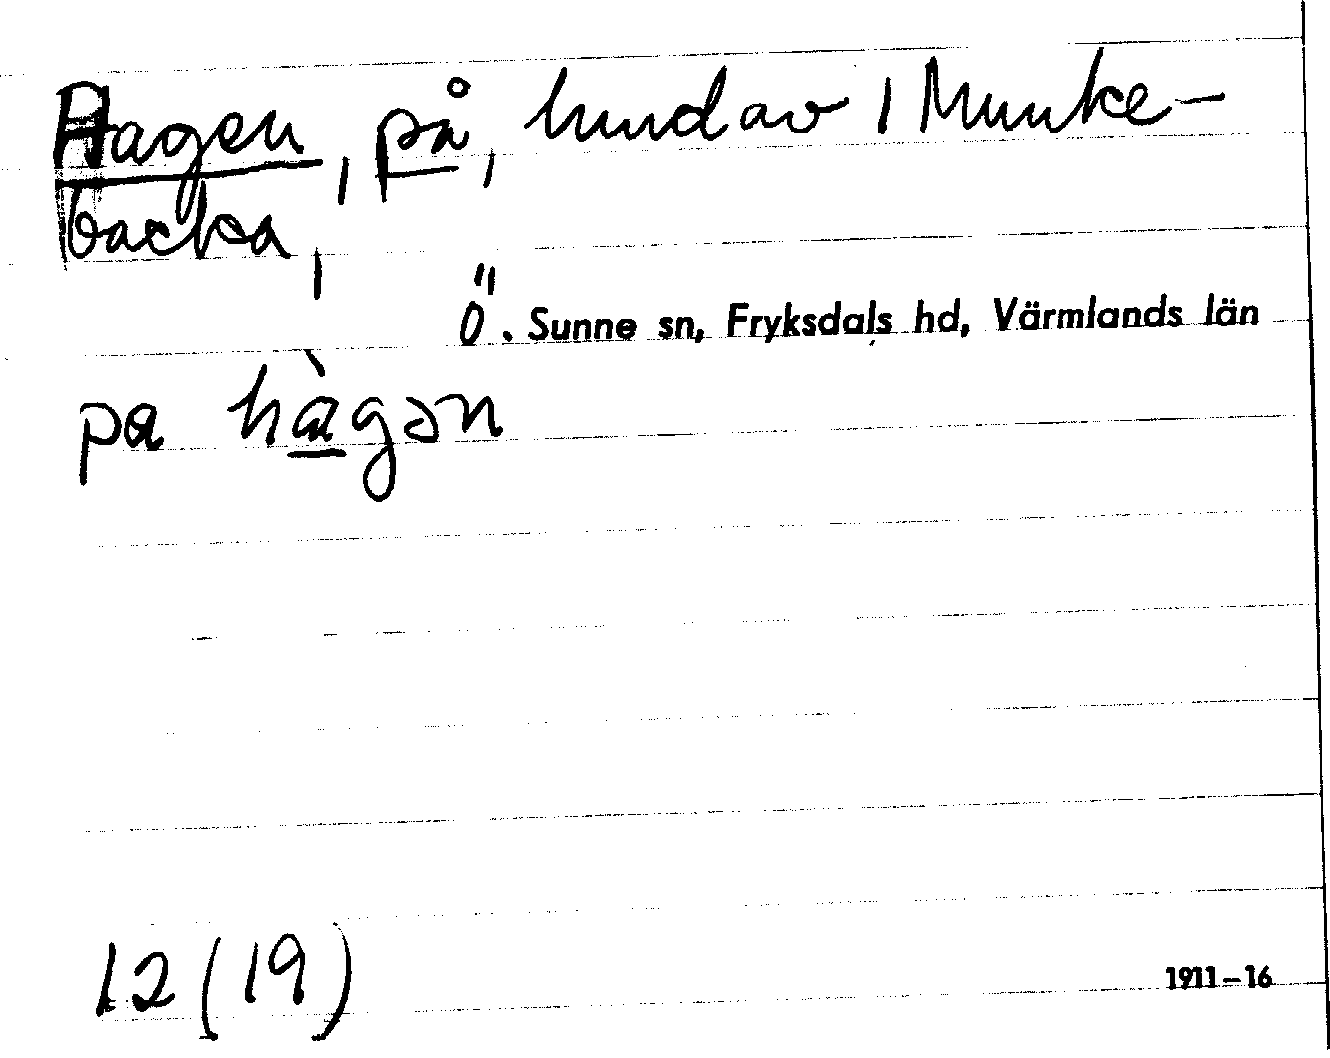 Hagen, på, hmdav 1 Munke-
backa,
Ö. Sunne sn, Fryksdals hd, Värmlands län
pa hàgən
12 (19)
1911–16